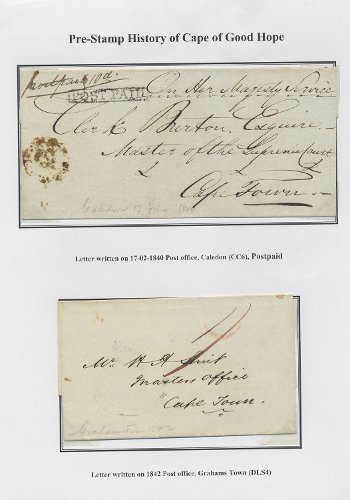 Pre-Stamp History of Cape of Good Hope
postpaid 10d.
POST PAID
On Her Majesty Service
Clerk Burton, Esquire
Master of the Supreme Court
Cape Town
Caledon 17 Feb 1840
Letter written on 17-02-1840 Post office, Caledon (CC6), Postpaid
4
Mr. H A
Masters Office
Cape Town.
Grahamstown 1842
Letter written on 1842 Post office, Grahams Town (DLS4)